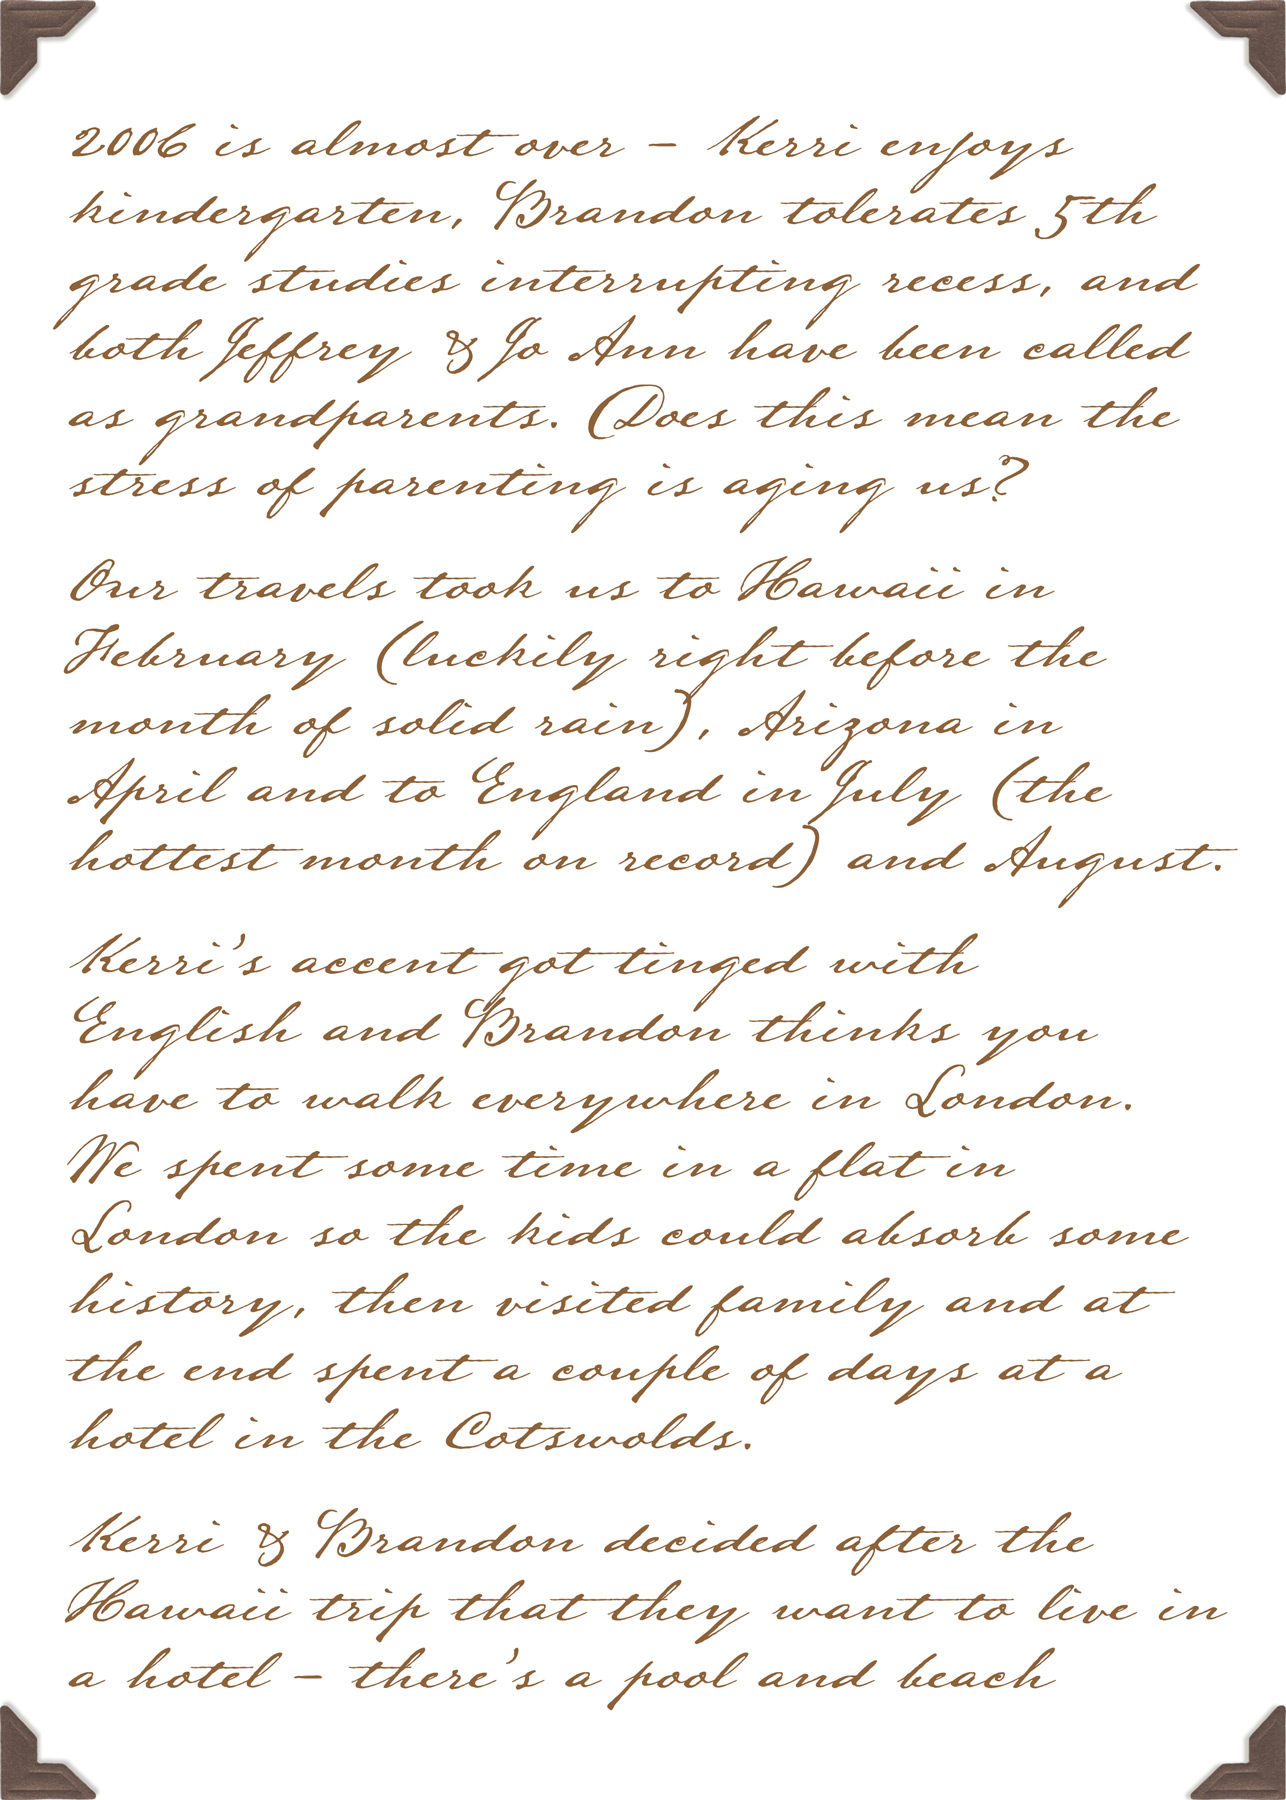 2006 is almost over – Kerri enjoys
kindergarten, Brandon tolerates 5th
grade studies interrupting recess, and
both Jeffrey & Jo Ann have been called
as grandparents. (Does this mean the
stress of parenting is aging us?
Our travels took us to Hawaii in
February (luckily right before the
month of solid rain), Arizona in
April and to England in July (the
hottest month on record) and August.
Kerri's accent got tinged with
English and Brandon thinks you
have to walk everywhere in London.
We spent some time in a flat in
London so the kids could absorb some
history, then visited family and at
the end spent a couple of days at a
hotel in the Cotswolds.
Kerri & Brandon decided after the
Hawaii trip that they want to live in
a hotel – there's a pool and beach